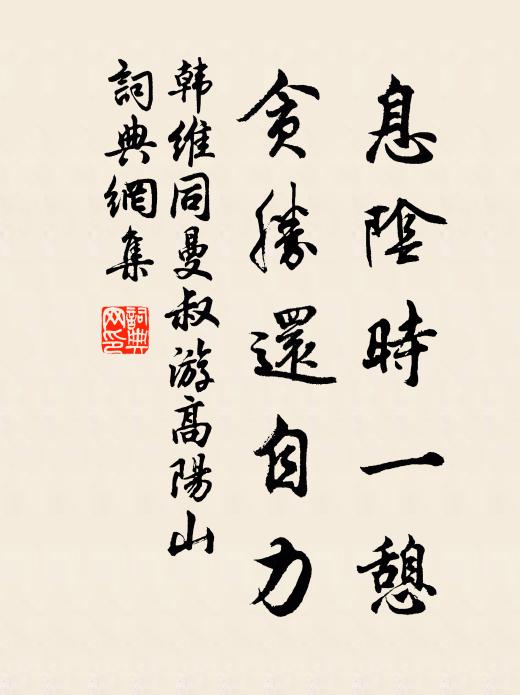 息陰時一憩
貪勝還自力
韩维同曼叔游高陽山
詞典網集
詞典
网印